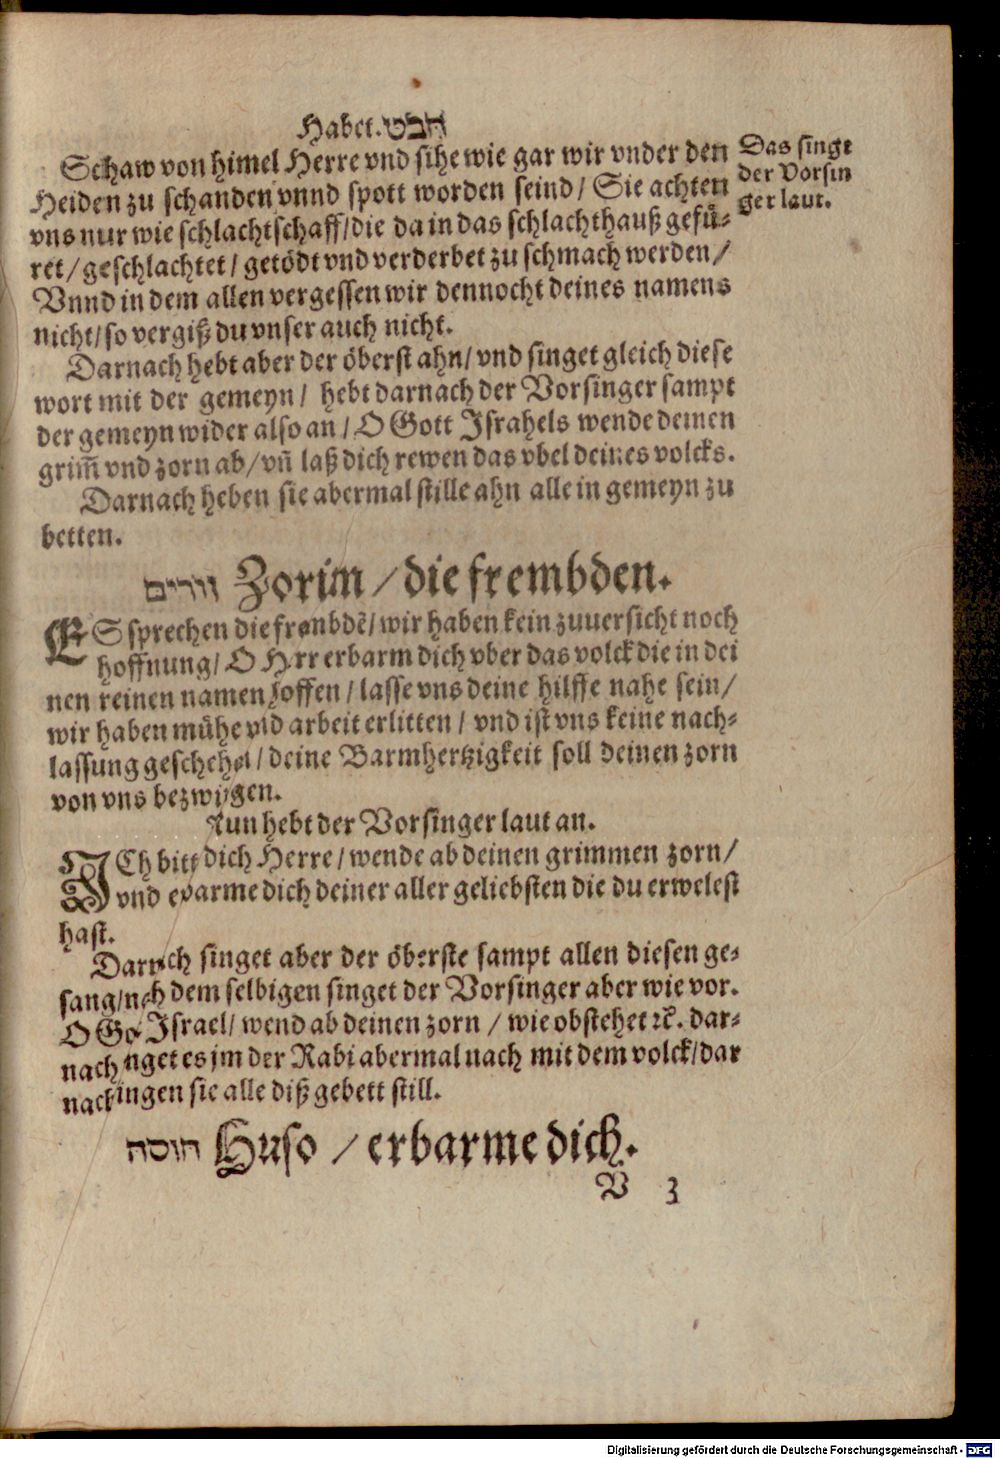 Habet. הבט
Schaw von himel Herre vnd sihe wie gar wir vnder den
Heiden zu schanden vnnd spott worden seind/ Sie achten
vns nur wie schlachtschaff/die da in das schlachthauß gefuͤ-
ret/ geschlachtet/ getödt vnd verderbet zu schmach werden/
Vnnd in dem allen vergessen wir dennocht deines namens
nicht/ so vergiß du vnser auch nicht.
Das singt
der Vorsin
ger laut.
Darnach hebt aber der öberst ahn/ vnd singet gleich diese
wort mit der gemeyn/ hebt darnach der Vorsinger sampt
der gemeyn wider also an/ O Gott Israhels wende deinen
grim̃ vnd zorn ab/ vñ laß dich rewen das vbel deines volcks.
Darnach heben sie abermal stille ahn alle in gemeyn zu
betten.
זרים Zorim/ die frembden.
ES sprechen die frembdẽ/ wir haben kein zuuersicht noch
hoffnung/ O Herr erbarm dich vber das volck die in dei
nen reinen namen hoffen/ lasse vns deine hilffe nahe sein/
wir haben mühe vnd arbeit erlitten/ vnd ist vns keine nach-
lassung geschehen/ deine Barmhertzigkeit soll deinen zorn
von vns bezwingen.
Nun hebt der Vorsinger laut an.
ICh bitt dich Herre/ wende ab deinen grimmen zorn/
vnd erbarme dich deiner aller geliebsten die du erwelest
hast.
Darnach singet aber der öberste sampt allen diesen ge-
sang/nach dem selbigen singet der Vorsinger aber wie vor.
O Gott Israel/ wend ab deinen zorn/ wie obstehet ꝛc. dar-
nach singet es jm der Rabi abermal nach mit dem volck/dar
nach singen sie alle diß gebett still.
חוסה Huso/ erbarme dich.
V 3
Digitalisierung gefördert durch die Deutsche Forschungsgemeinschaft - DFG